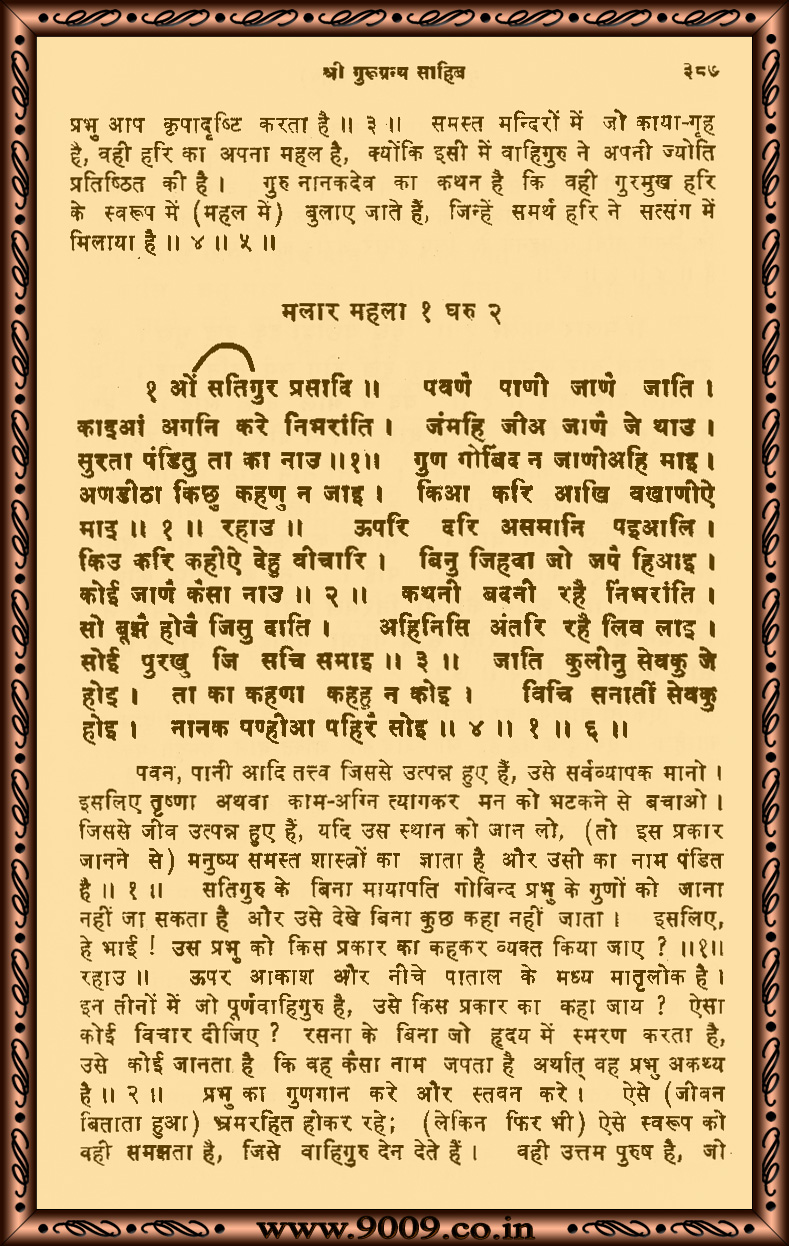 श्री गुरूग्रन्थ साहिब ३८७
प्रभु आप कृपादृष्टि करता है ॥ ३ ॥ समस्त मन्दिरों में जो काया-गृह
है, वही हरि का अपना महल है, क्योंकि इसी में वाहिगुरु ने अपनी ज्योति
प्रतिष्ठित की है । गुरु नानकदेव का कथन है कि वही गुरमुख हरि
के स्वरूप में (महल में) बुलाए जाते हैं, जिन्हें समर्थ हरि ने सत्संग में
मिलाया है ॥ ४ ॥ ५ ॥
मलार महला १ घरु २
१ ओं सतिगुर प्रसादि ॥ पवणै पाणी जाणै जाति ।
काइआं अगनि करे निभरांति । जंमहि जीअ जाणै जे थाउ ।
सुरता पंडितु ता का नाउ ॥१॥ गुण गोबिंद न जाणीअहि माइ ।
अणडीठा किछु कहणु न जाइ । किआ करि आखि वखाणीऐ
माइ ॥ १ ॥ रहाउ ॥ ऊपरि दरि असमानि पइआलि ।
किउ करि कहीऐ देहु वीचारि । बिनु जिहवा जो जपै हिआइ ।
कोई जाणै कैसा नाउ ॥ २ ॥ कथनी बदनी रहै निभरांति ।
सो बूझै होवै जिसु दाति । अहिनिसि अंतरि रहै लिव लाइ ।
सोई पुरखु जि सचि समाइ ॥ ३ ॥ जाति कुलीनु सेवकु जे
होइ । ता का कहणा कहहु न कोइ । विचि सनातीं सेवकु
होइ । नानक पण्हीआ पहिरै सोइ ॥ ४ ॥ १ ॥ ६ ॥
पवन, पानी आदि तत्त्व जिससे उत्पन्न हुए हैं, उसे सर्वव्यापक मानो ।
इसलिए तृष्णा अथवा काम-अग्नि त्यागकर मन को भटकने से बचाओ ।
जिससे जीव उत्पन्न हुए हैं, यदि उस स्थान को जान लो, (तो इस प्रकार
जानने से) मनुष्य समस्त शास्त्रों का ज्ञाता है और उसी का नाम पंडित
है ॥ १ ॥ सतिगुरु के बिना मायापति गोबिन्द प्रभु के गुणों को जाना
नहीं जा सकता है और उसे देखे बिना कुछ कहा नहीं जाता । इसलिए,
हे भाई ! उस प्रभु को किस प्रकार का कहकर व्यक्त किया जाए ? ॥१॥
रहाउ ॥ ऊपर आकाश और नीचे पाताल के मध्य मातृलोक है ।
इन तीनों में जो पूर्णवाहिगुरु है, उसे किस प्रकार का कहा जाय ? ऐसा
कोई विचार दीजिए ? रसना के बिना जो हृदय में स्मरण करता है,
उसे कोई जानता है कि वह कैसा नाम जपता है अर्थात् वह प्रभु अकथ्य
है ॥ २ ॥ प्रभु का गुणगान करे और स्तवन करे । ऐसे (जीवन
बिताता हुआ) भ्रमरहित होकर रहे; (लेकिन फिर भी) ऐसे स्वरूप को
वही समझता है, जिसे वाहिगुरु देन देते हैं । वही उत्तम पुरुष है, जो
www.9009.co.in